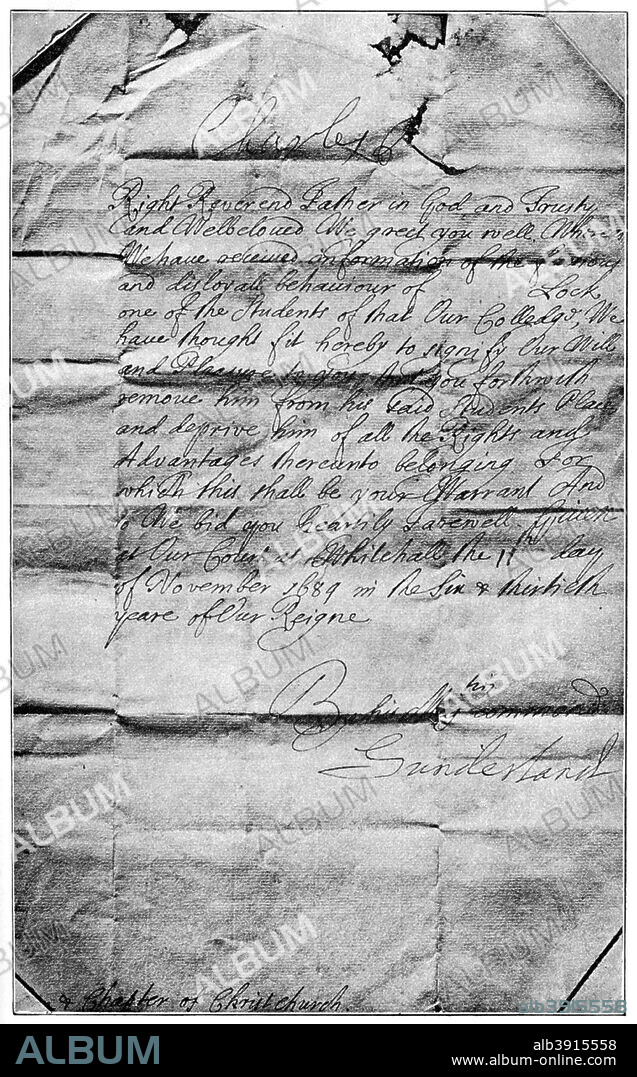 Charles R
Right Reverend Father in God, and Trusty
and Welbeloved We greet you well. Whereas
We have received information of the
and disloyall behaviour of Lock
one of the Students of that Our Colledge, We
have thought fit hereby to signify Our Will
and Pleasure to you, that you forthwith
remove him from his said Students Place
and deprive him of all the Rights and
Advantages thereunto belonging For
which this shall be your Warrant And
so We bid you heartily Farewell. Given
at Our Court at Whitehall the 11th day
of November 1684 in the Six & thirtieth
yeare of Our Reigne
By his Maj<sup>ties</sup> command
Sunderland
& Chapter of Christchurch.
ALBUM
alb3915558
ALBUM
alb3915558
www.album-online.com